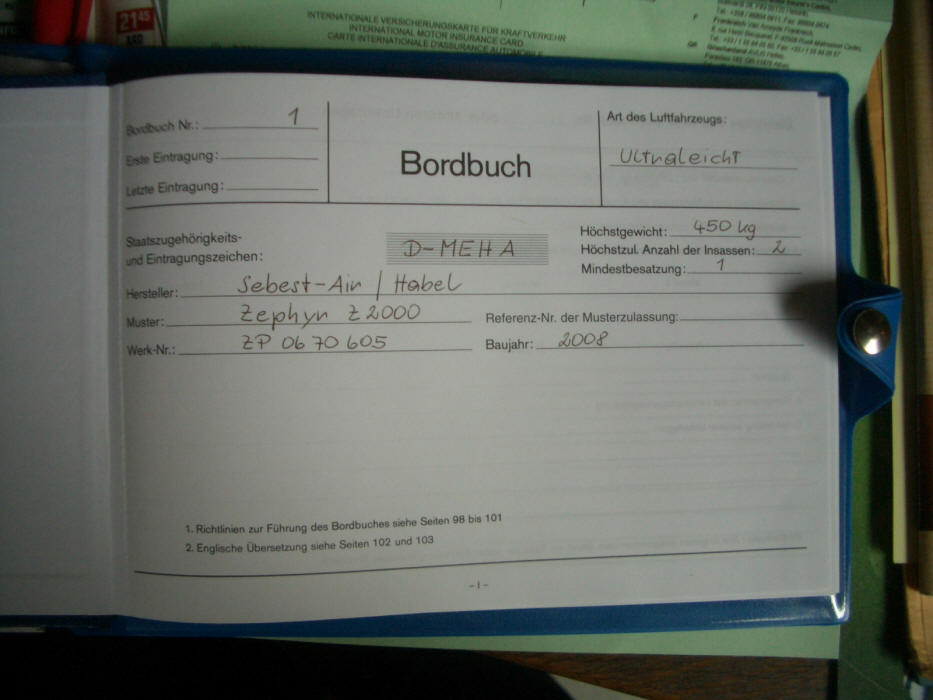 2145
INTERNATIONALE VERSICHERUNGSKARTE FÜR KRAFTVERKEHR
INTERNATIONAL MOTOR INSURANCE CARD
CARTE INTERNATIONALE D'ASSURANCE AUTOMOBILE
Bordbuch Nr.: 1
Erste Eintragung:
Letzte Eintragung:
Bordbuch
Art des Luftfahrzeugs:
Ultraleicht
Staatszugehörigkeits-
und Eintragungszeichen:
D-MEHA
Höchstgewicht: 450 kg
Höchstzul. Anzahl der Insassen: 2
Mindestbesatzung: 1
Hersteller: Sebest-Air / Habel
Muster: Zephyr Z2000
Referenz-Nr. der Musterzulassung:
Werk-Nr.: ZP 06 70 605
Baujahr: 2008
1. Richtlinien zur Führung des Bordbuches siehe Seiten 98 bis 101
2. Englische Übersetzung siehe Seiten 102 und 103
- I -